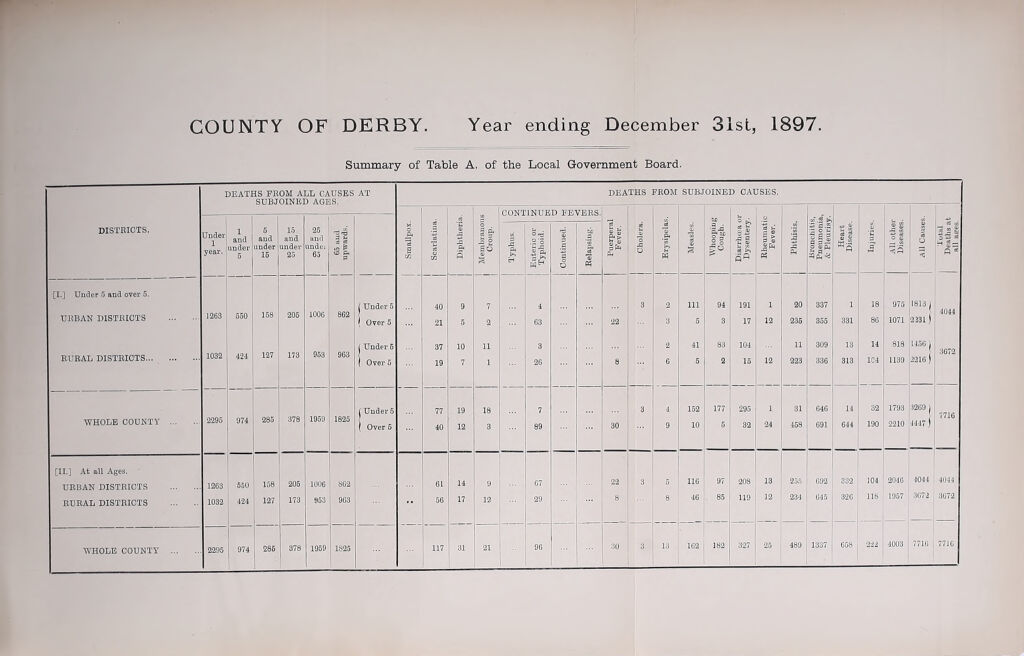 COUNTY OF DERBY. Year ending December 31st, 1897.
Summary of Table A. of the Local Government Board.
DISTRICTS. DEATHS FROM ALL CAUSES AT SUBJOINED AGES. DEATHS FROM SUBJOINED CAUSES.
Under 1 year. 1 and under 5 5 and under 15 15 and under 25 25 and under 65 65 and upwards. Smallpox. Scarlatina. Diphtheria. Membranous Croup. CONTINUED FEVERS. Typhus. Enteric or Typhoid. Continued. Relapsing. Puerperal Fever. Cholera. Erysipelas. Measles. Whooping Cough. Diarrhœa or Dysentery. Rheumatic Fever. Phthisis. Bronchitis, Pneumonia, & Pleurisy. Heart Disease. Injuries. All other Diseases. All Causes. Total Deaths at all ages.
[I.] Under 5 and over 5.
URBAN DISTRICTS ... ... 1263 550 158 205 1006 862
Under 5 ... 40 9 7 ... 4 ... ... ... 3 2 111 94 191 1 20 337 1 18 975 1813
Over 5 ... 21 5 2 ... 63 ... ... 22 ... 3 5 3 17 12 235 355 331 86 1071 2231
4044
RURAL DISTRICTS... ... ... 1032 424 127 173 953 963
Under 5 ... 37 10 11 ... 3 ... ... ... ... 2 41 83 104 ... 11 309 13 14 818 1456
Over 5 ... 19 7 1 ... 26 ... ... 8 ... 6 5 2 15 12 223 336 313 104 1139 2216
3672
WHOLE COUNTY ... ... 2295 974 285 378 1959 1825
Under 5 ... 77 19 18 ... 7 ... ... ... 3 4 152 177 295 1 31 646 14 32 1793 3269
Over 5 ... 40 12 3 ... 89 ... ... 30 ... 9 10 5 32 24 458 691 644 190 2210 4447
7716
[II.] At all Ages.
URBAN DISTRICTS ... ... 1263 550 158 205 1006 862 ... ... 61 14 9 ... 67 ... ... 22 3 5 116 97 208 13 255 692 332 104 2046 4044 4044
RURAL DISTRICTS ... ... 1032 424 127 173 953 963 ... .. 56 17 12 ... 29 ... ... 8 ... 8 46 85 119 12 234 645 326 118 1957 3672 3672
WHOLE COUNTY ... ... 2295 974 285 378 1959 1825 ... ... 117 31 21 ... 96 ... ... 30 3 13 162 182 327 25 489 1337 658 222 4003 7716 7716